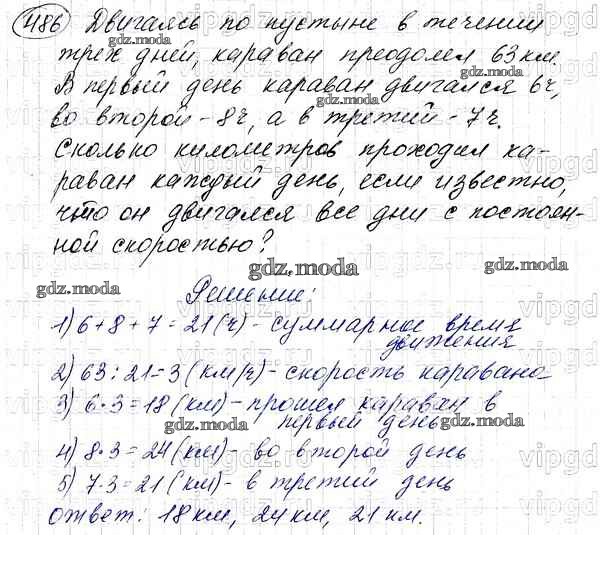 486 Двигаясь по пустыне в течении
трех дней, караван преодолел 63 км.
В первый день караван двигался 6ч,
во второй - 8ч, а в третий - 7ч.
Сколько километров проходил ка-
раван каждый день, если известно,
что он двигался все дни с постоян-
ной скоростью?
gdz.moda
Решение:
1) 6+8+7=21(ч) - суммарное время
движения
2) 63:21=3 (км/ч) - скорость каравана
3) 6·3=18(км) - прошел караван в
первый день
4) 8·3=24(км) - во второй день
5) 7·3=21(км) - в третий день
ответ: 18км, 24км, 21 км.